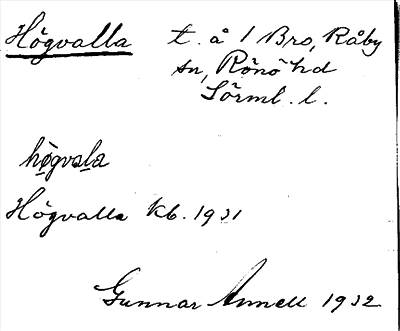 Högvalla t. å 1 Bro, Råby
sn, Rönö hd
Sörml. l.
högvala
Högvalla kb. 1931
Gunnar Annell 1932